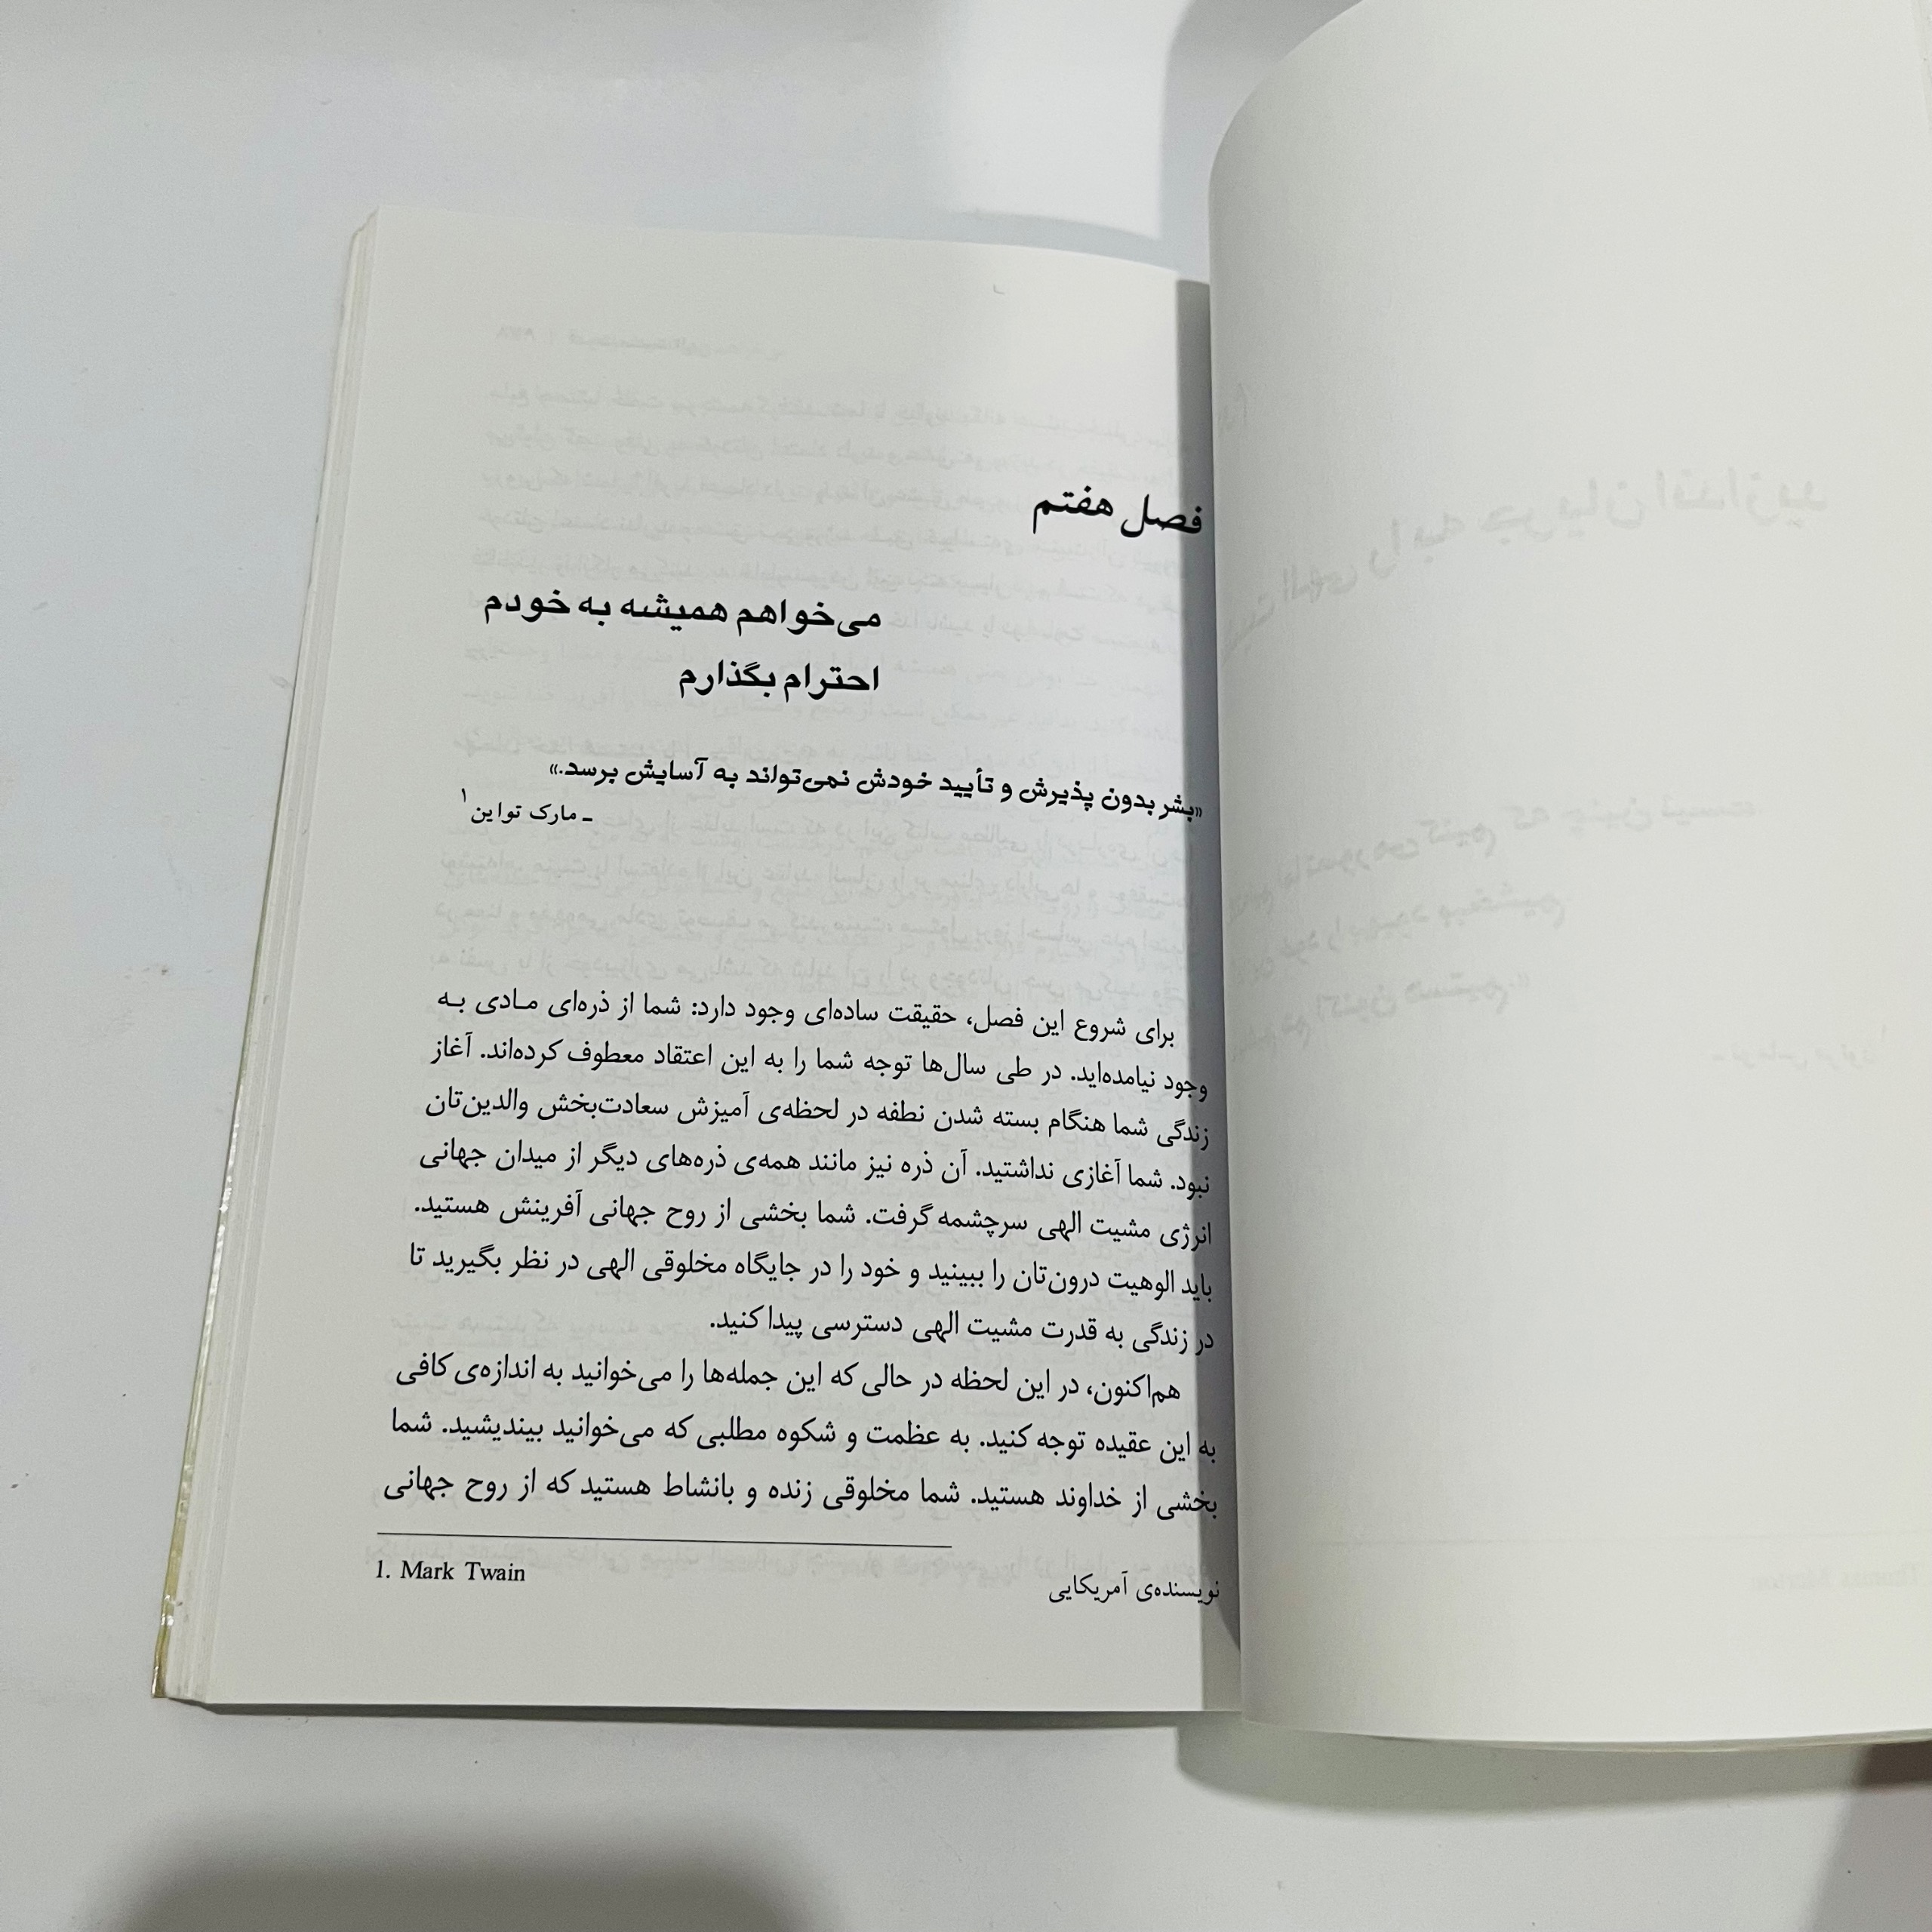 فصل هفتم
می‌خواهم همیشه به خودم
احترام بگذارم
«بشر بدون پذیرش و تأیید خودش نمی‌تواند به آسایش برسد.»
ـ مارک تواین۱
برای شروع این فصل، حقیقت ساده‌ای وجود دارد: شما از ذره‌ای مـادی بـه
وجود نیامده‌اید. در طی سال‌ها توجه شما را به این اعتقاد معطوف کرده‌اند. آغاز
زندگی شما هنگام بسته شدن نطفه در لحظه‌ی آمیزش سعادت‌بخش والدین‌تان
نبود. شما آغازی نداشتید. آن ذره نیز مانند همه‌ی ذره‌های دیگر از میدان جهانی
انرژی مشیت الهی سرچشمه گرفت. شما بخشی از روح جهانی آفرینش هستید.
باید الوهیت درون‌تان را ببینید و خود را در جایگاه مخلوقی الهی در نظر بگیرید تا
در زندگی به قدرت مشیت الهی دسترسی پیدا کنید.
هم‌اکنون، در این لحظه در حالی که این جمله‌ها را می‌خوانید به اندازه‌ی کافی
به این عقیده توجه کنید. به عظمت و شکوه مطلبی که می‌خوانید بیندیشید. شما
بخشی از خداوند هستید. شما مخلوقی زنده و بانشاط هستید که از روح جهانی
نویسنده‌ی آمریکایی
1. Mark Twain